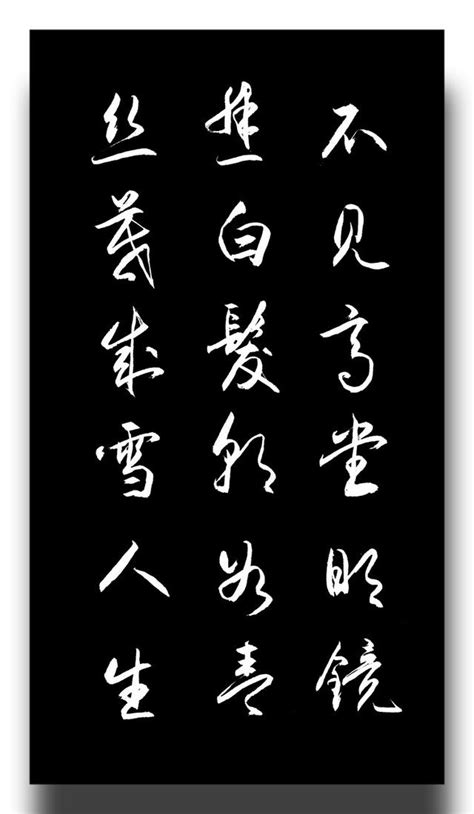 不见高堂明鏡
悲白髮朝如青
丝暮成雪人生